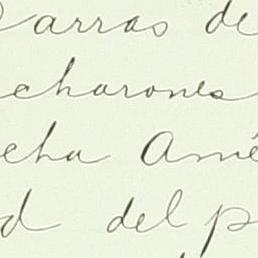 Parras de
charones
cha Amé
d del p